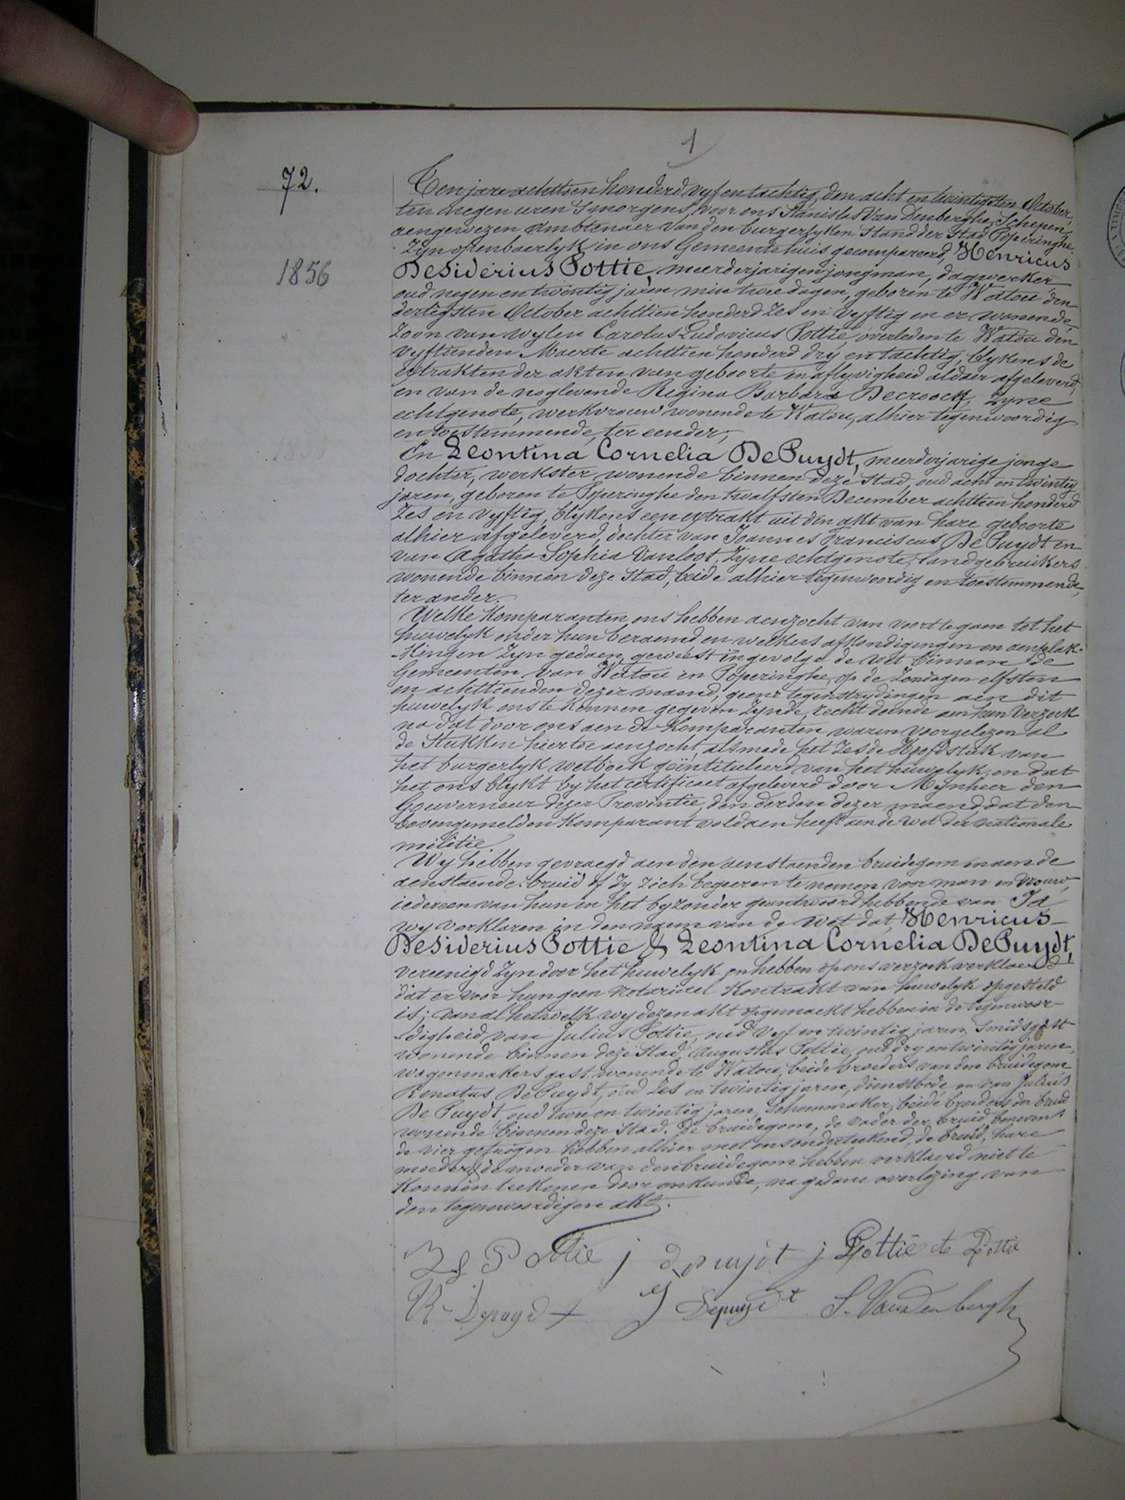 1
72.
Ten jare achttien honderd vyf en tachtig, den acht en twintigsten October,
ten negen uren 's morgens, voor ons Stanislas Van Denberghe, Schepen,
aengewezen Ambtenaer van den burgerlyken Stand der Stad Poperinghe
Zyn openbaerlyk in ons Gemeentehuis gecompareerd, Henricus
1856
Desiderius Pottie, meerderjarigen jongman, dagwerker
oud negen en twintig jaren min twee dagen, geboren te Watou den
dertigsten October achttien honderd zes en vyftig en er wonende,
zoon van wylen Carolus Ludovicus Pottie, overleden te Watou den
vyftienden Maerte achttien honderd dry en tachtig, blykens de
extrakten der akten van geboorte en aflyvigheid aldaer afgeleverd,
en van de noglevende Regina Barbara Decroock, zyne
echtgenote, werkvrouw wonende te Watou, alhier tegenwoordig
en toestemmende, ter eender;
En Leontina Cornelia DePuydt, meerderjarige jonge
dochter, werkster wonende binnen deze stad, oud acht en twintig
jaren, geboren te Poperinghe den twalfsten December achttien honderd
zes en vyftig, blykens een extrakt uit den akt van hare geboorte
alhier afgeleverd, dochter van Joannes Franciscus DePuydt en
van Agatha Sophia Vanloot, zyne echtgenote, landgebruikers
wonende binnen deze stad, beide alhier tegenwoordig en toestemmende,
ter ander.
Welke Komparanten ons hebben aenzocht van voort te gaen tot het
huwelyk onder hun beraemd en welkers afkondigingen en aenplak-
kingen zyn gedaen geweest ingevolge de wet binnen de
Gemeenten van Watou en Poperinghe, op de Zondagen elfsten
en achttienden dezer maend, geene tegenstrydingen aen dit
huwelyk ons te kennen gegeven zynde, recht doende aen hun verzoek
na dat door ons aen de Komparanten waren voorgelezen al
de Stukken hiertoe aenzocht, alsmede het zesde Hoofdstuk van
het burgerlyk wetboek geïntituleerd van het huwelyk, en dat
het ons blykt by het certificaet afgeleverd door Mynheer den
Gouverneur dezer Provintie, den derden dezer maend, dat den
bovengemelden Komparant voldaen heeft aen de wet der nationale
militie,
Wy hebben gevraegd aen den aenstaenden bruidegom en aen de
aenstaende bruid of zy zich begeeren te nemen voor man en vrouw,
iedereen van hun in het byzonder geantwoord hebbende van Ja,
wy verklaren in den naem van de Wet dat, Henricus
Desiderius Pottie & Leontina Cornelia DePuydt,
vereenigd zyn door het huwelyk, en hebben op ons verzoek verklaerd
dat er voor hun geen notariael Kontrakt van huwelyk opgesteld
is; van al hetwelk wy dezen akt opgemaekt hebben in de tegenwoor-
digheid van Julius Pottie, oud vyf en twintig jaren, smidsgast
wonende binnen deze stad, Augustus Pottie, oud dry en twintig jaren,
wagenmakersgast, wonende te Watou, beide broeders van den bruidegom
Renatus DePuydt, oud zes en twintig jaren, dienstbode, en van Julius
De Puydt, oud twee en twintig jaren, schoenmaker, beide broeders der bruid
wonende binnen deze stad. De bruidegom, de vader der bruid, benevens
de vier getuigen hebben alhier met ons onderteekend, de bruid, hare
moeder & de moeder van den bruidegom hebben verklaerd niet te
konnen teekenen door onkunde, na gedane overlezing van
den tegenwoordigen akt.
Pottie j depuydt j Pottie Pottie
R. Depuydt J Depuydt S. Vandenberghe